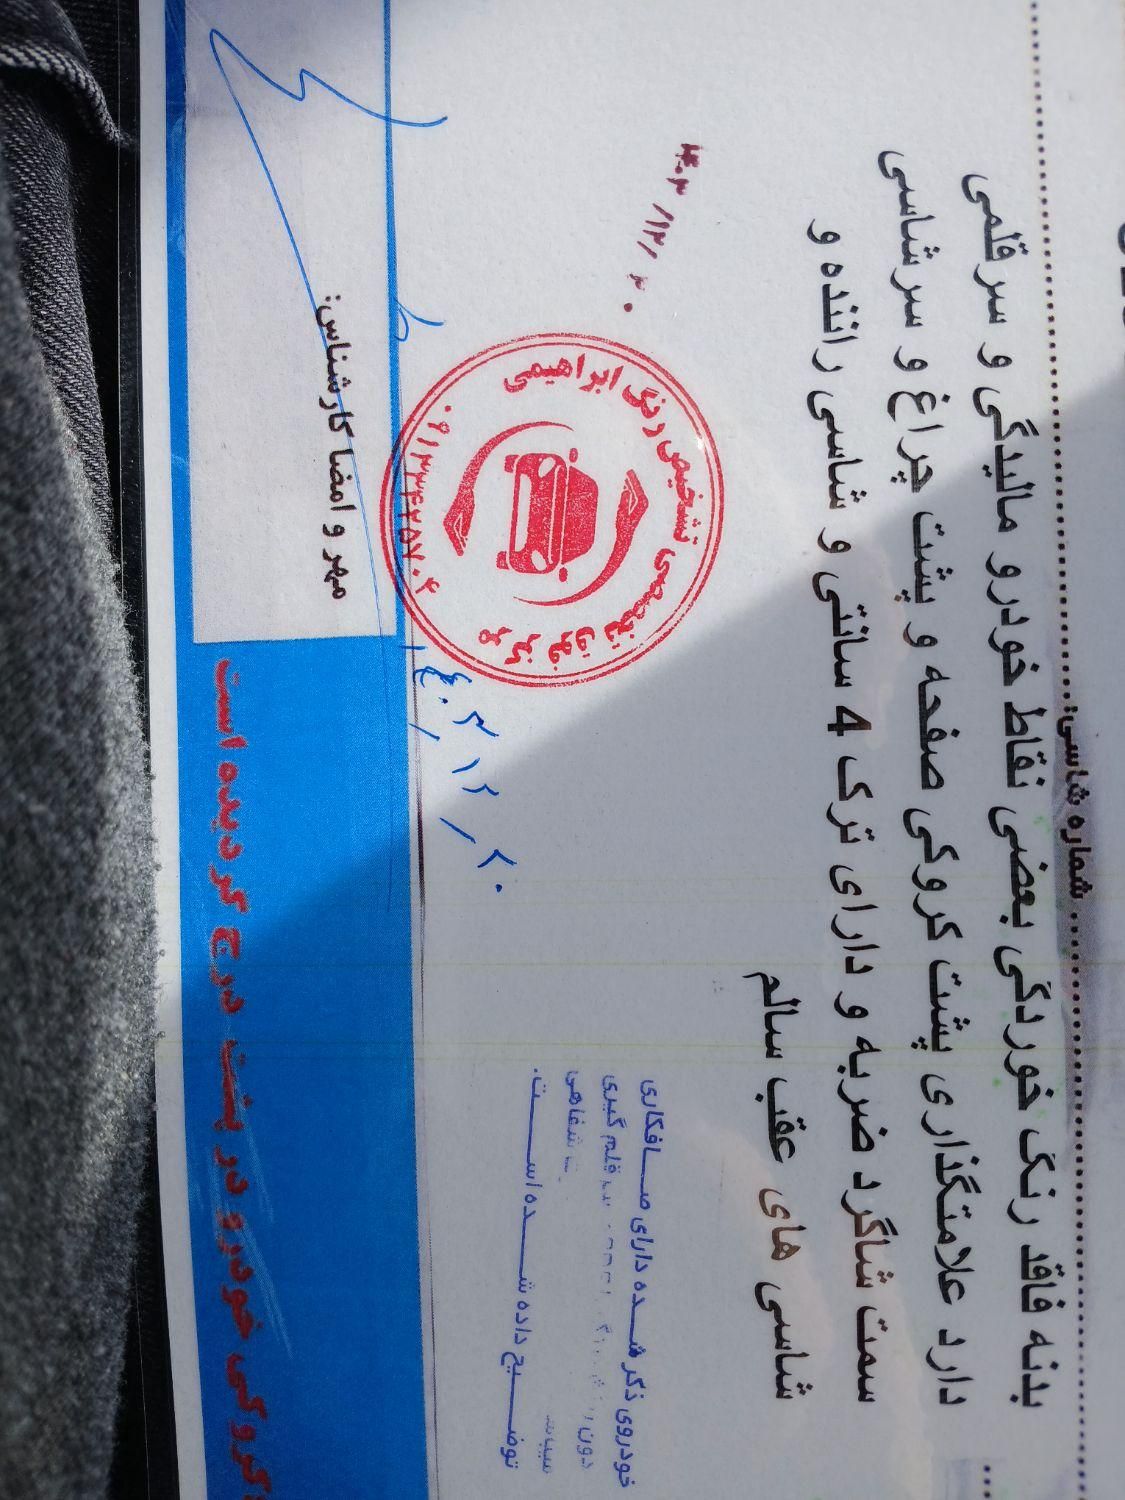 شماره شاسی:
بدنه فاقد رنگ خوردگی بعضی نقاط خودرو مالیدگی و سرقلمی
دارد علامتگذاری پشت کروکی صفحه و پشت چراغ و سرشاسی
سمت شاگرد ضربه و دارای ترک 4 سانتی و شاسی راننده و
شاسی های عقب سالم
۱۴۰۳/۱۲/۲۰
خودروی ذکر شده دارای صافکاری
قلم گیری
شفاهی
توضیح داده شده است.
مرکز فوق تخصصی تشخیص رنگ ابراهیمی
۱۴۰۳/۱۲/۲۰
مهر و امضا کارشناس:
کروکی خودرو در پشت درج گردیده است